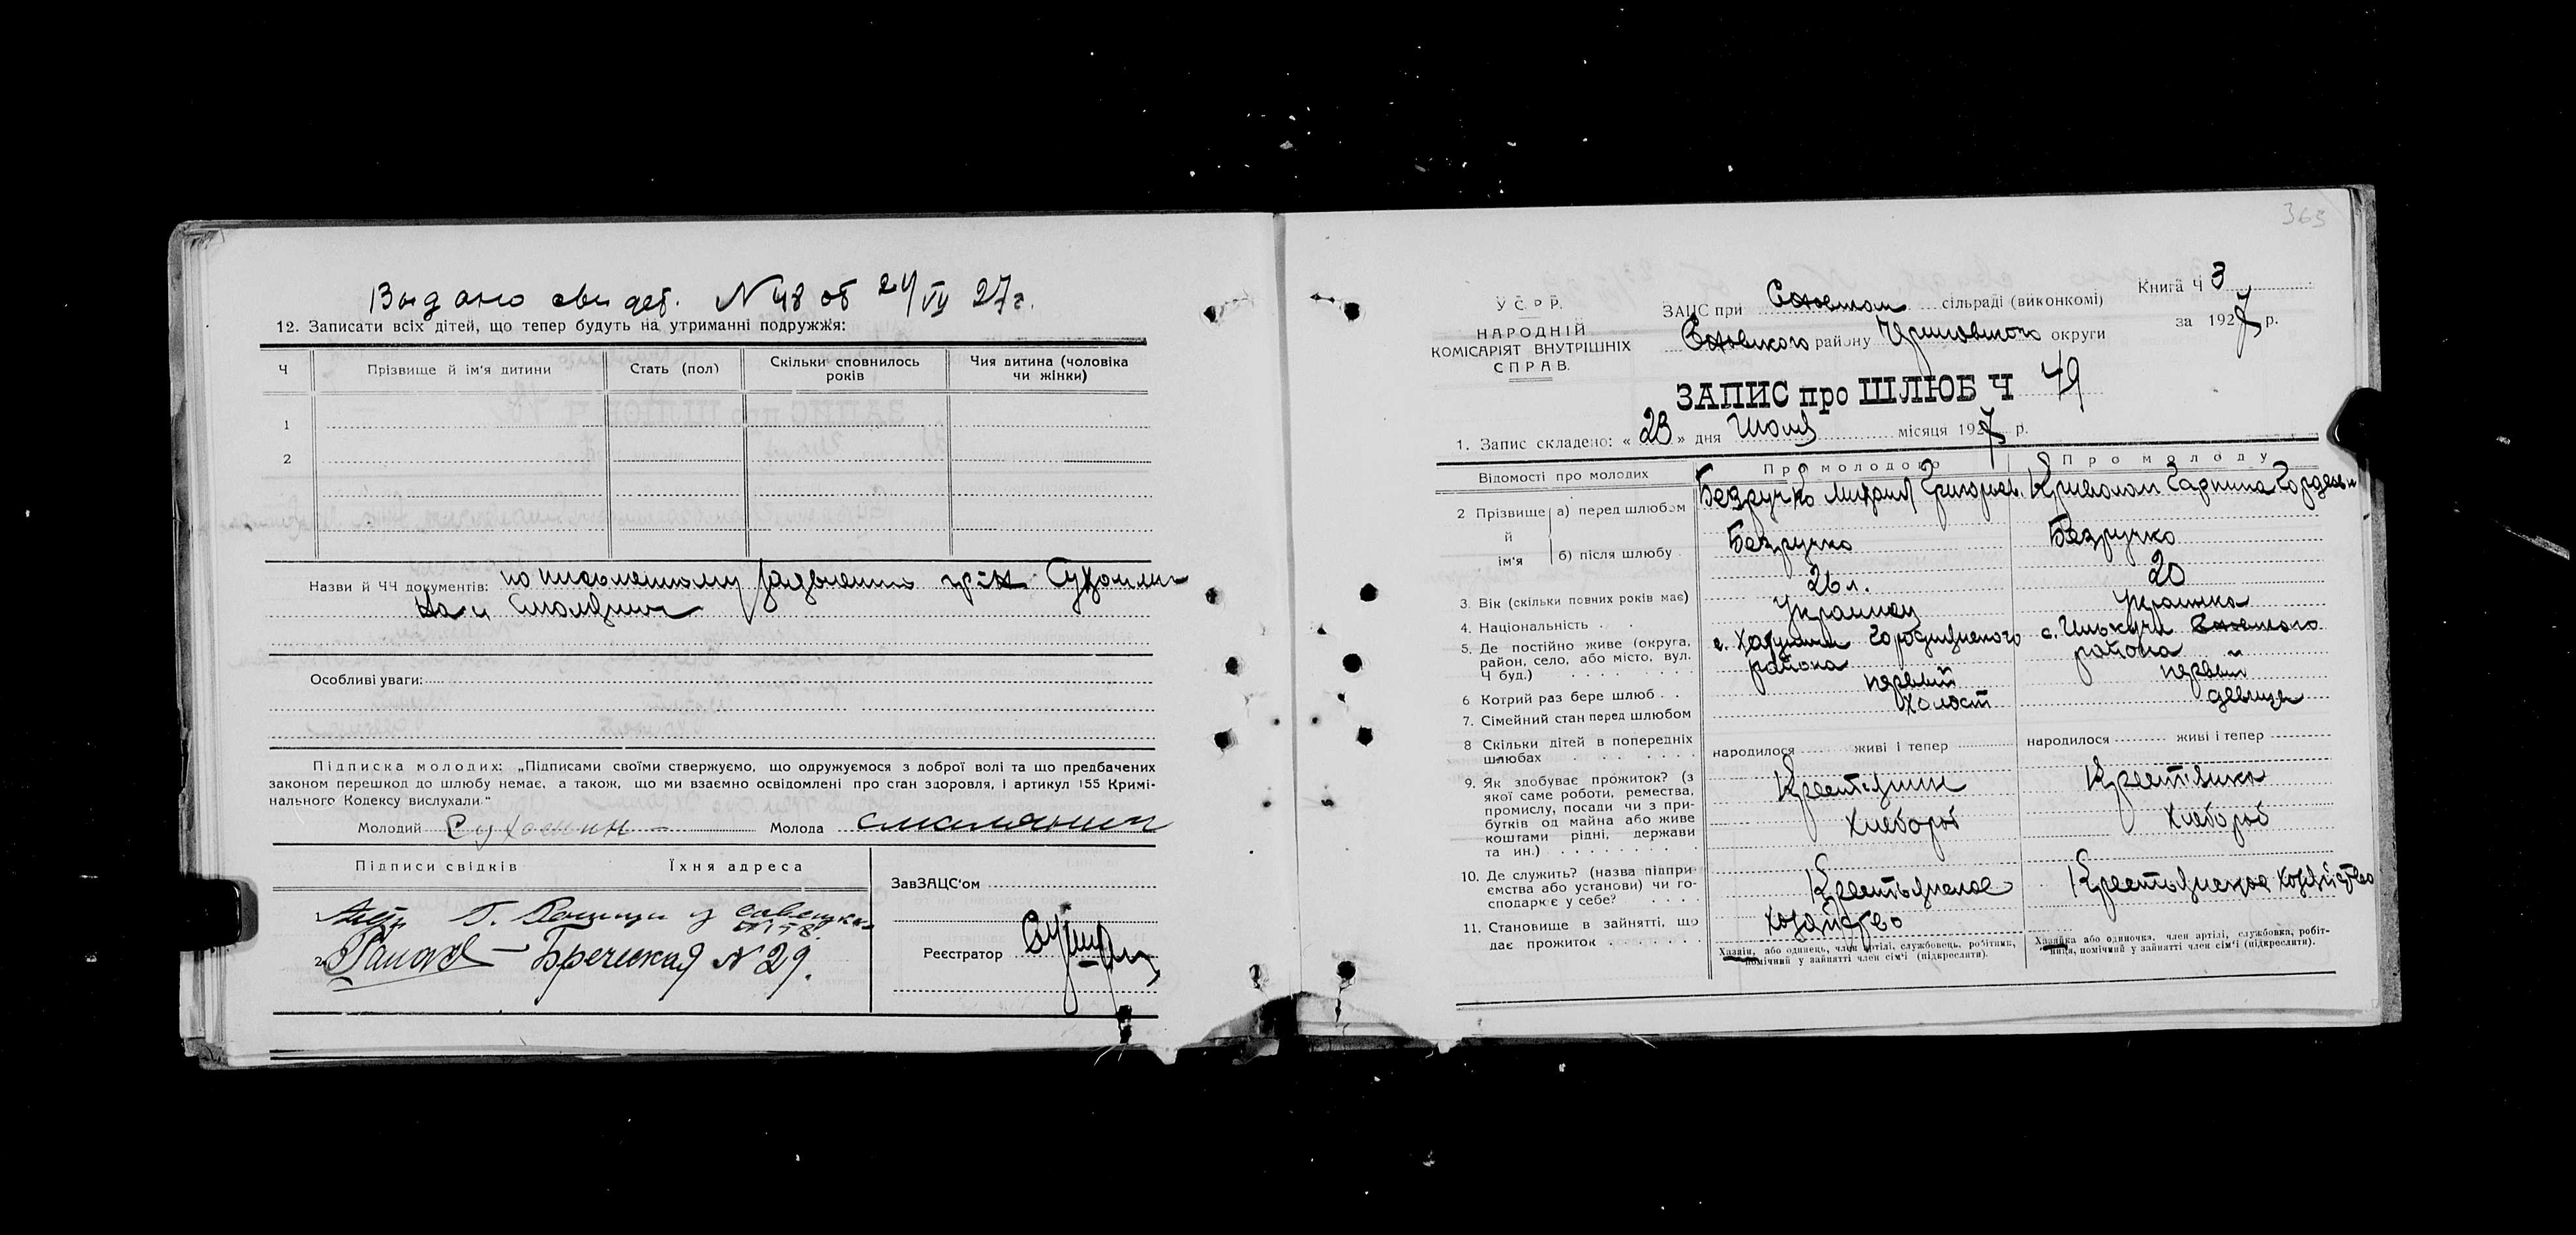 Выдано свидет. N 48 от 24/VI 27 г.
12. Записати всіх дітей, що тепер будуть на утриманні подружжя:
Ч
Прізвище й ім'я дитини
Стать (пол)
Скільки сповнилось років
Чия дитина (чоловіка чи жінки)
1
2
Назви й ЧЧ документів: по письменному заявлению
Особливі уваги:
Підписка молодих: „Підписами своїми стверджуємо, що одружуємося з доброї волі та що предбачених
законом перешкод до шлюбу немає, а також, що ми взаємно освідомлені про стан здоровля, і артикул 155 Кримі-
нального Кодексу вислухали."
Молодий Молода
Підписи свідків Їхня адреса
ЗавЗАЦС'ом
1
2 N 29.
Реєстратор
363
У С Р Р.
НАРОДНІЙ
КОМІСАРІЯТ ВНУТРІШНІХ
СПРАВ.
ЗАЦС при сільраді (виконкомі)
Книга Ч 3
району округи
за 1927 р.
ЗАПИС про ШЛЮБ Ч 49
1. Запис складено: « 23 » дня Июля місяця 1927 р.
Відомості про молодих
Про молодого
Про молоду
2 Прізвище й ім'я
а) перед шлюбом
Безручко Михаил Григорьев.
Криволап Гордеевн
б) після шлюбу
Безручко
Безручко
3. Вік (скільки повних років має)
26 л.
20
4. Національність
Украинец
Украинка
5. Де постійно живе (округа,
район, село, або місто, вул.
Ч буд.)
с. Городнянского
района
с. района
6 Котрий раз бере шлюб
первый
первый
7. Сімейний стан перед шлюбом
холост
девица
8 Скільки дітей в попередніх
шлюбах
народилося живі і тепер
народилося живі і тепер
9. Як здобуває прожиток? (з
якої саме роботи, ремества,
промислу, посади чи з при-
бутків од майна або живе
коштами рідні, держави
та ин.)
Крестьянин
Хлебороб
Крестьянка
Хлебороб
10. Де служить? (назва підпри-
ємства або установи) чи го-
сподарює у себе?
Крестьянское
хозяйство
Крестьянское хозяйство
11. Становище в зайнятті, що
дає прожиток
Хазяїн, або одинець, член артілі, службовець, робітник,
помічний у зайнятті член сім'ї (підкреслити).
Хазяйка або одиночка, член артілі, службовка, робіт-
ниця, помічний у зайнятті член сім'ї (підкреслити).